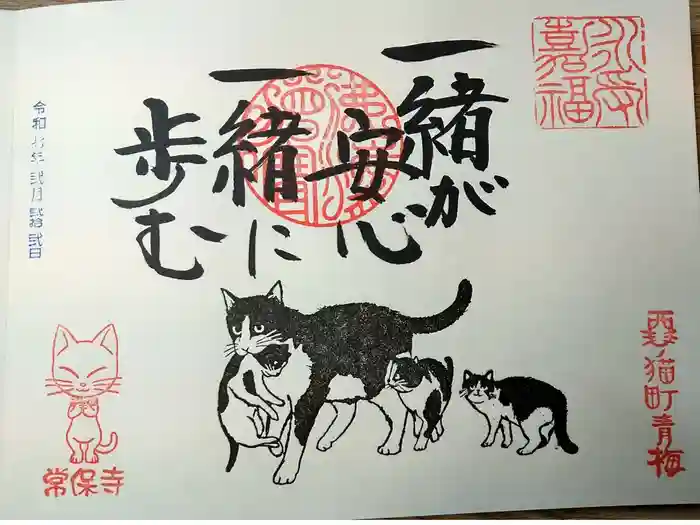 永受
嘉福
一緒が
安心
一緒に
歩む
令和七年 弐月 弐拾弐日
常保寺
昭和ノ猫町青梅